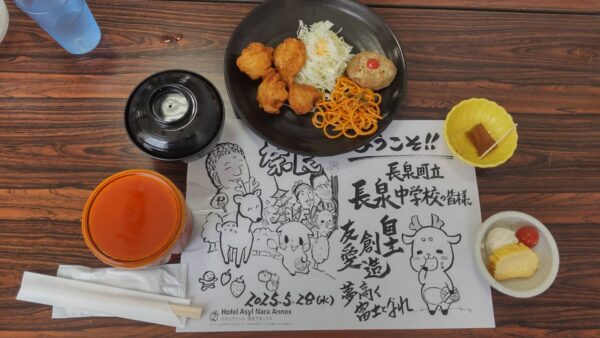 奈良
ようこそ!!
長泉町立
長泉中学校の皆様
自主
創造
友愛
夢高く
富士となれ
2025.5.28(水)
Hotel Asyl Nara Annex